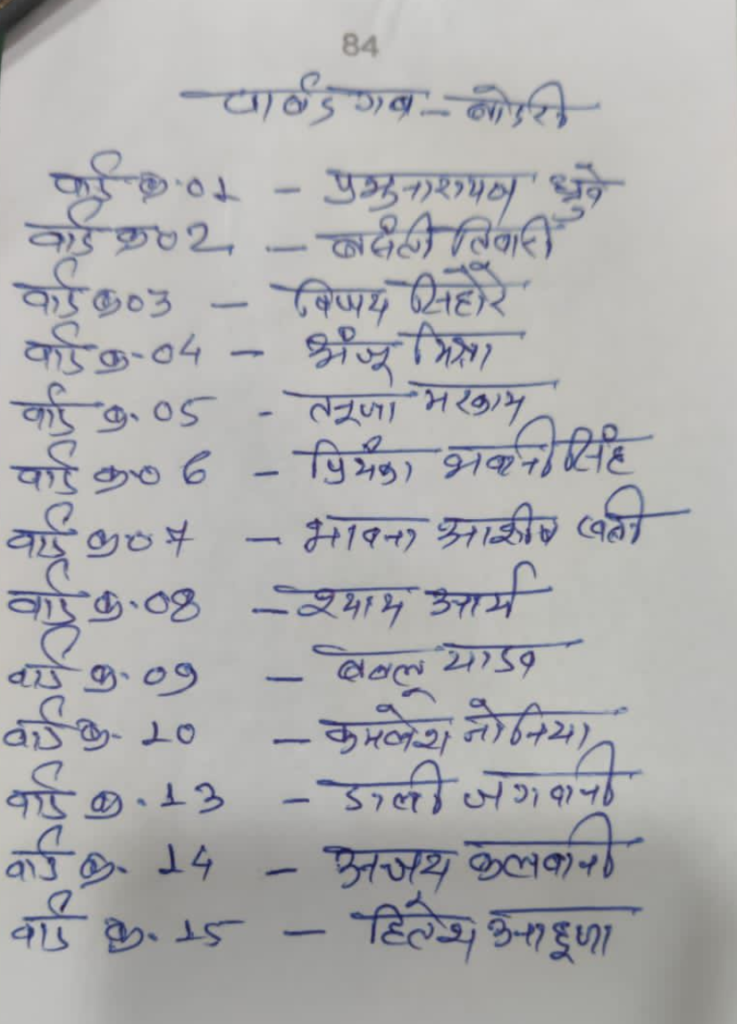 84
पार्षद गण - बोदरी
वार्ड क्र.01 - प्रभुनारायण ध्रुवे
वार्ड क्र02 - बसंती तिवारी
वार्ड क्र03 - विजय
वार्ड क्र.04 - अंजू मिश्रा
वार्ड क्र.05 - तनूजा मरकाम
वार्ड क्र०6 - प्रियंका भवानी सिंह
वार्ड क्र०7 - भावना आशीष खत्री
वार्ड क्र.08 - श्याम आर्य
वार्ड क्र.09 - बबलू यादव
वार्ड क्र. 10 - कमलेश नोनिया
वार्ड क्र. 13 - डाली जगवानी
वार्ड क्र. 14 - अजय कलवानी
वार्ड क्र. 15 - हितेश आहूजा